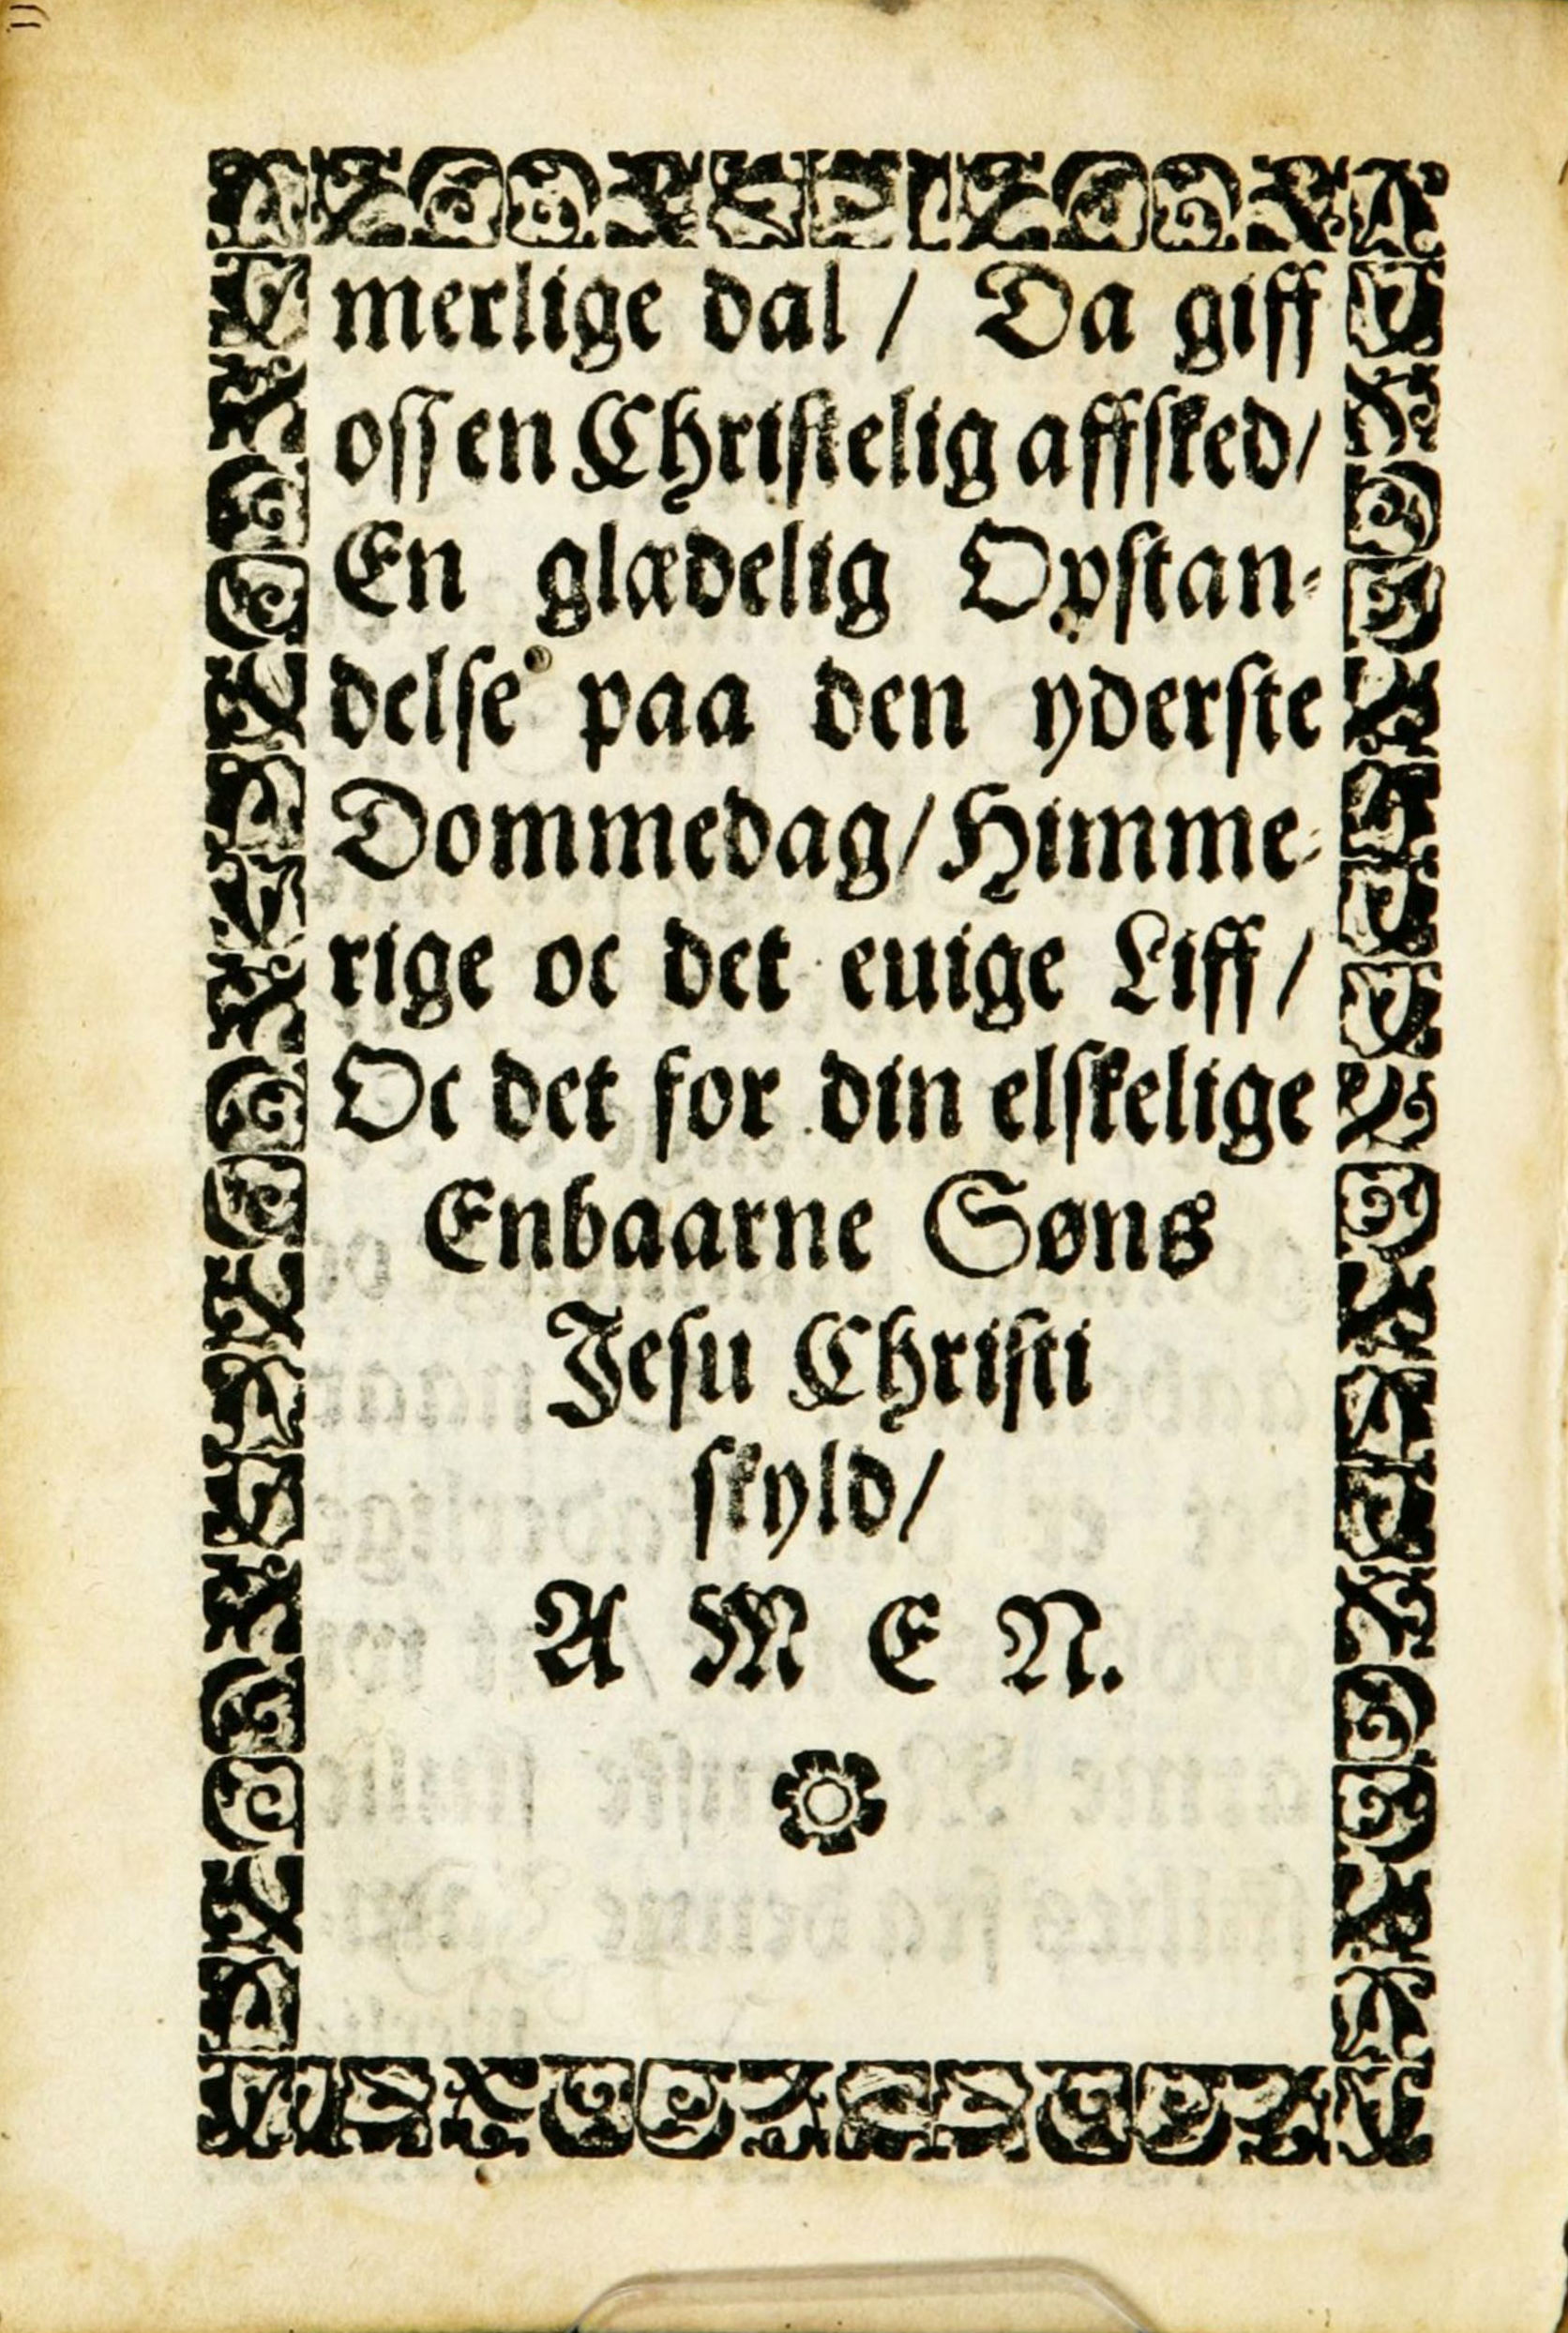 merlige dal / Da giff
oſſ en Chriſtelig affſked/
En glædelig Opſtan-
delſe paa den yderſte
Dommedag/ Himme-
rige oc det euige Liff /
Oc det for din elſkelige
Enbaarne Søns
Jeſu Chriſti
ſkyld/
A M E N.